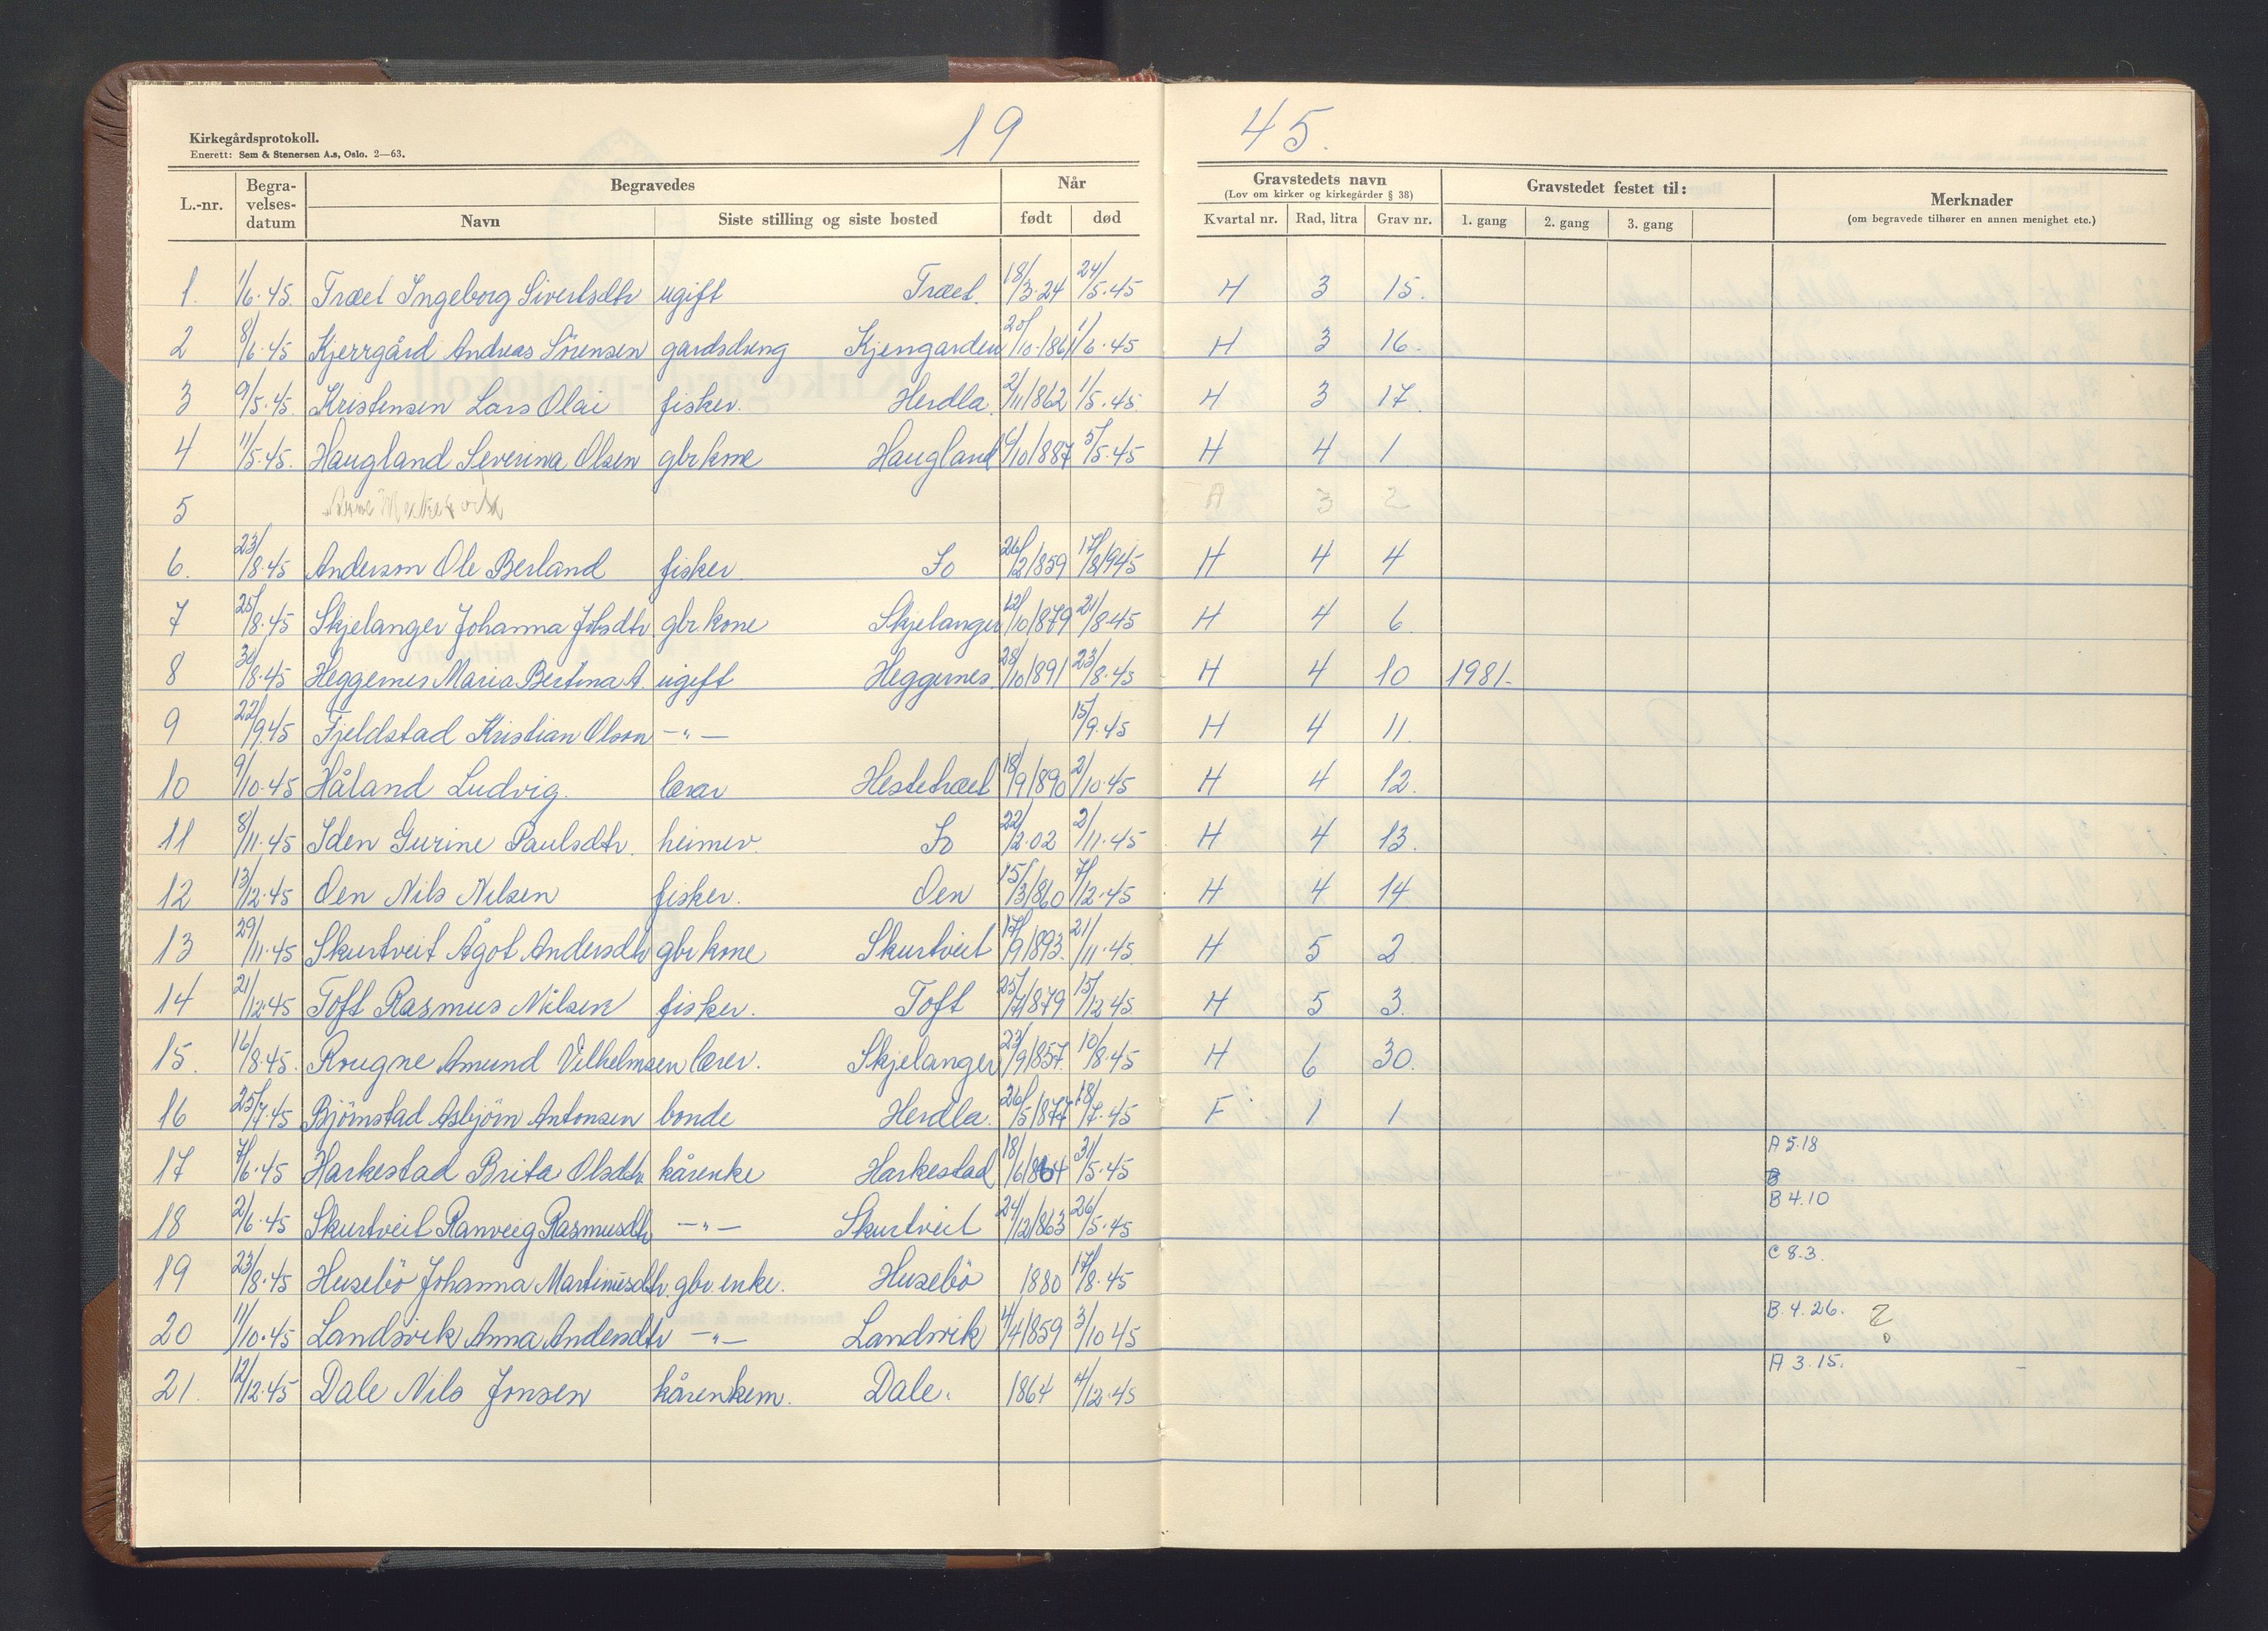 19 45.
Kirkegårdsprotokoll.
Enerett: Sem & Stenersen A.s, Oslo. 2—63.
L.-nr. Begra-velses-datum Begravedes Når Gravstedets navn Gravstedet festet til: Merknader
(Lov om kirker og kirkegårder § 38) (om begravede tilhører en annen menighet etc.)
Navn Siste stilling og siste bosted født død Kvartal nr. Rad, litra Grav nr. 1. gang 2. gang 3. gang
1. 1/6.45. Træet Ingeborg Sivertsdtr ugift Træet. 18/3.24 24/5.45 H 3 15.
2 8/6.45 Kjerrgård Andreas Sörensen gardsdreng Kjergarden 20/10.1861 1/6.45 H 3 16.
3 9/5.45. Kristensen Lars Olai fisker. Herdla. 2/11 1862 1/5.45. H 3 17.
4 11/5.45. Haugland Severina Olsen gbr kone Haugland 6/10 1887 5/5.45 H 4 1
5 A 3 2
6. 23/8.45 Anderson Ole Berland fisker. Io 26/2 1859 17/8 1945 H 4 4
7 25/8.45 Skjelanger Johanna Jobsdtr gbr. kone Skjelanger 12/10 1879 21/8.45 H 4 6
8 30/8.45 Heggernes Maria Bertina A. ugift Heggernes. 28/10 1891 23/8.45 H 4 10 1981.
9 22/9.45 Fjeldstad Kristian Olson —"— 15/9.45 H 4 11.
10 9/10.45 Håland Ludvig. lærar Hestetræet 18/9 1890 2/10.45 H 4 12.
11 8/11.45 Iden Gurine Paulsdtr. heimev. Io 22/2.02 2/11.45 H 4 13.
12 13/12.45 Oen Nils Nilsen fisker. Oen 15/3 1860 7/12.45 H 4 14
13 29/11.45 Skurtveit Ågot Andersdtr gbr kone Skurtveit 17/9 1893. 21/11.45. H 5 2
14 21/12.45 Toft Rasmus Nilsen fisker. Toft 25/7 1879 15/12.45. H 5 3.
15. 16/8.45. Rougne Amund Vilhelmsen lærer. Skjelanger 23/9 1857. 10/8.45 H 6 30.
16 25/7.45 Björnstad Asbjörn Antonsen bonde Herdla. 26/5 1877 18/7.45 F 1 1
17 7/6.45 Harkestad Brita Olsdtr. kårenke Harkestad 18/6 1864 31/5.45 A 5.18
B
18 2/6.45 Skurtveit Ranveig Rasmusdtr —"— Skurtveit 24/12 1863 26/5.45 B 4.10
19 23/8.45 Husebö Johanna Martinusdtr. gbr. enke. Husebö 1880 17/8.45 C 8.3.
20 11/10.45 Landsvik Anna Andersdtr —"— Landsvik 4/4 1859 3/10 45 B.4.26. ?
21. 12/12.45 Dale Nils Jonsen kårenkem. Dale. 1864 4/12.45 A 3.15.